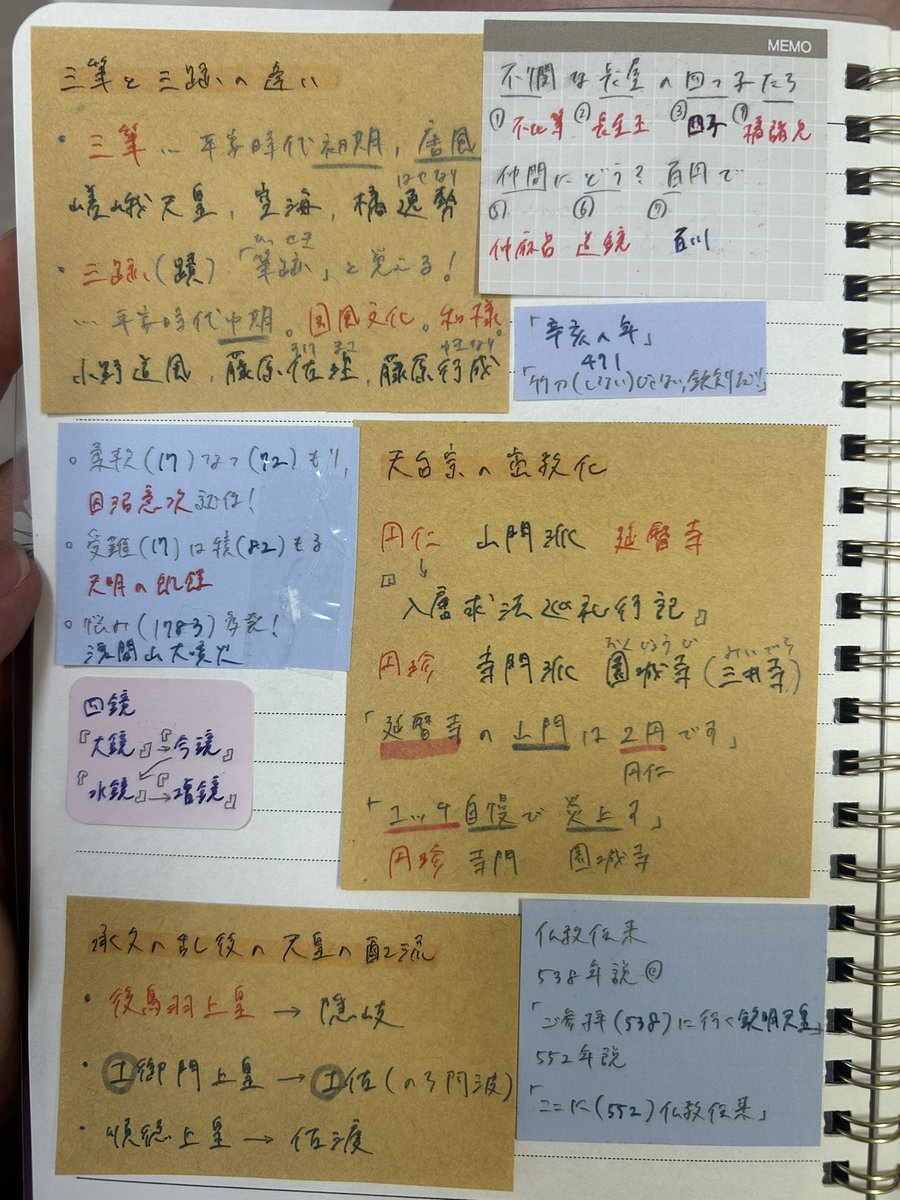 三筆と三跡の違い
・三筆…平安時代初期，唐風
はやなり
嵯峨天皇，空海，橘逸勢
・三跡(蹟)「筆跡」と覚える!
ひっせき
…平安時代中期。国風文化。和様。
すけまさ ゆきなり
小野道風，藤原佐理，藤原行成
MEMO
不憫な長屋の四つ子たち
① 不比等 ② 長屋王 ③ 四子 ④ 橘諸兄
仲間にどう?百円で
⑤ ⑥ ⑦
仲麻呂 道鏡 百川
「辛亥の年」
471
「竹刀(しない)じゃない,鉄剣だ!!」
。柔軟(17)なつ(72)もり,
田沼意次就任!
。受難(17)は続(82)もる
天明の飢饉
。(1783)多発!
浅間山大噴火
四鏡
『大鏡』→『今鏡』
『水鏡』→『増鏡』
天台宗の密教化
円仁 山門派 延暦寺
↓
『入唐求法巡礼行記』
おんじょうじ みいでら
円珍 寺門派 園城寺(三井寺)
「延暦寺の山門は2円です」
円仁
「エッチ自慢で炎上す」
円珍 寺門 園城寺
承久の乱後の天皇の配流
・後鳥羽上皇→隠岐
・土御門上皇→土佐(のち阿波)
・順徳上皇→佐渡
仏教伝来
538年説
「ご参拝(538)に行く欽明天皇」
552年説
「ここに(552)仏教伝来」